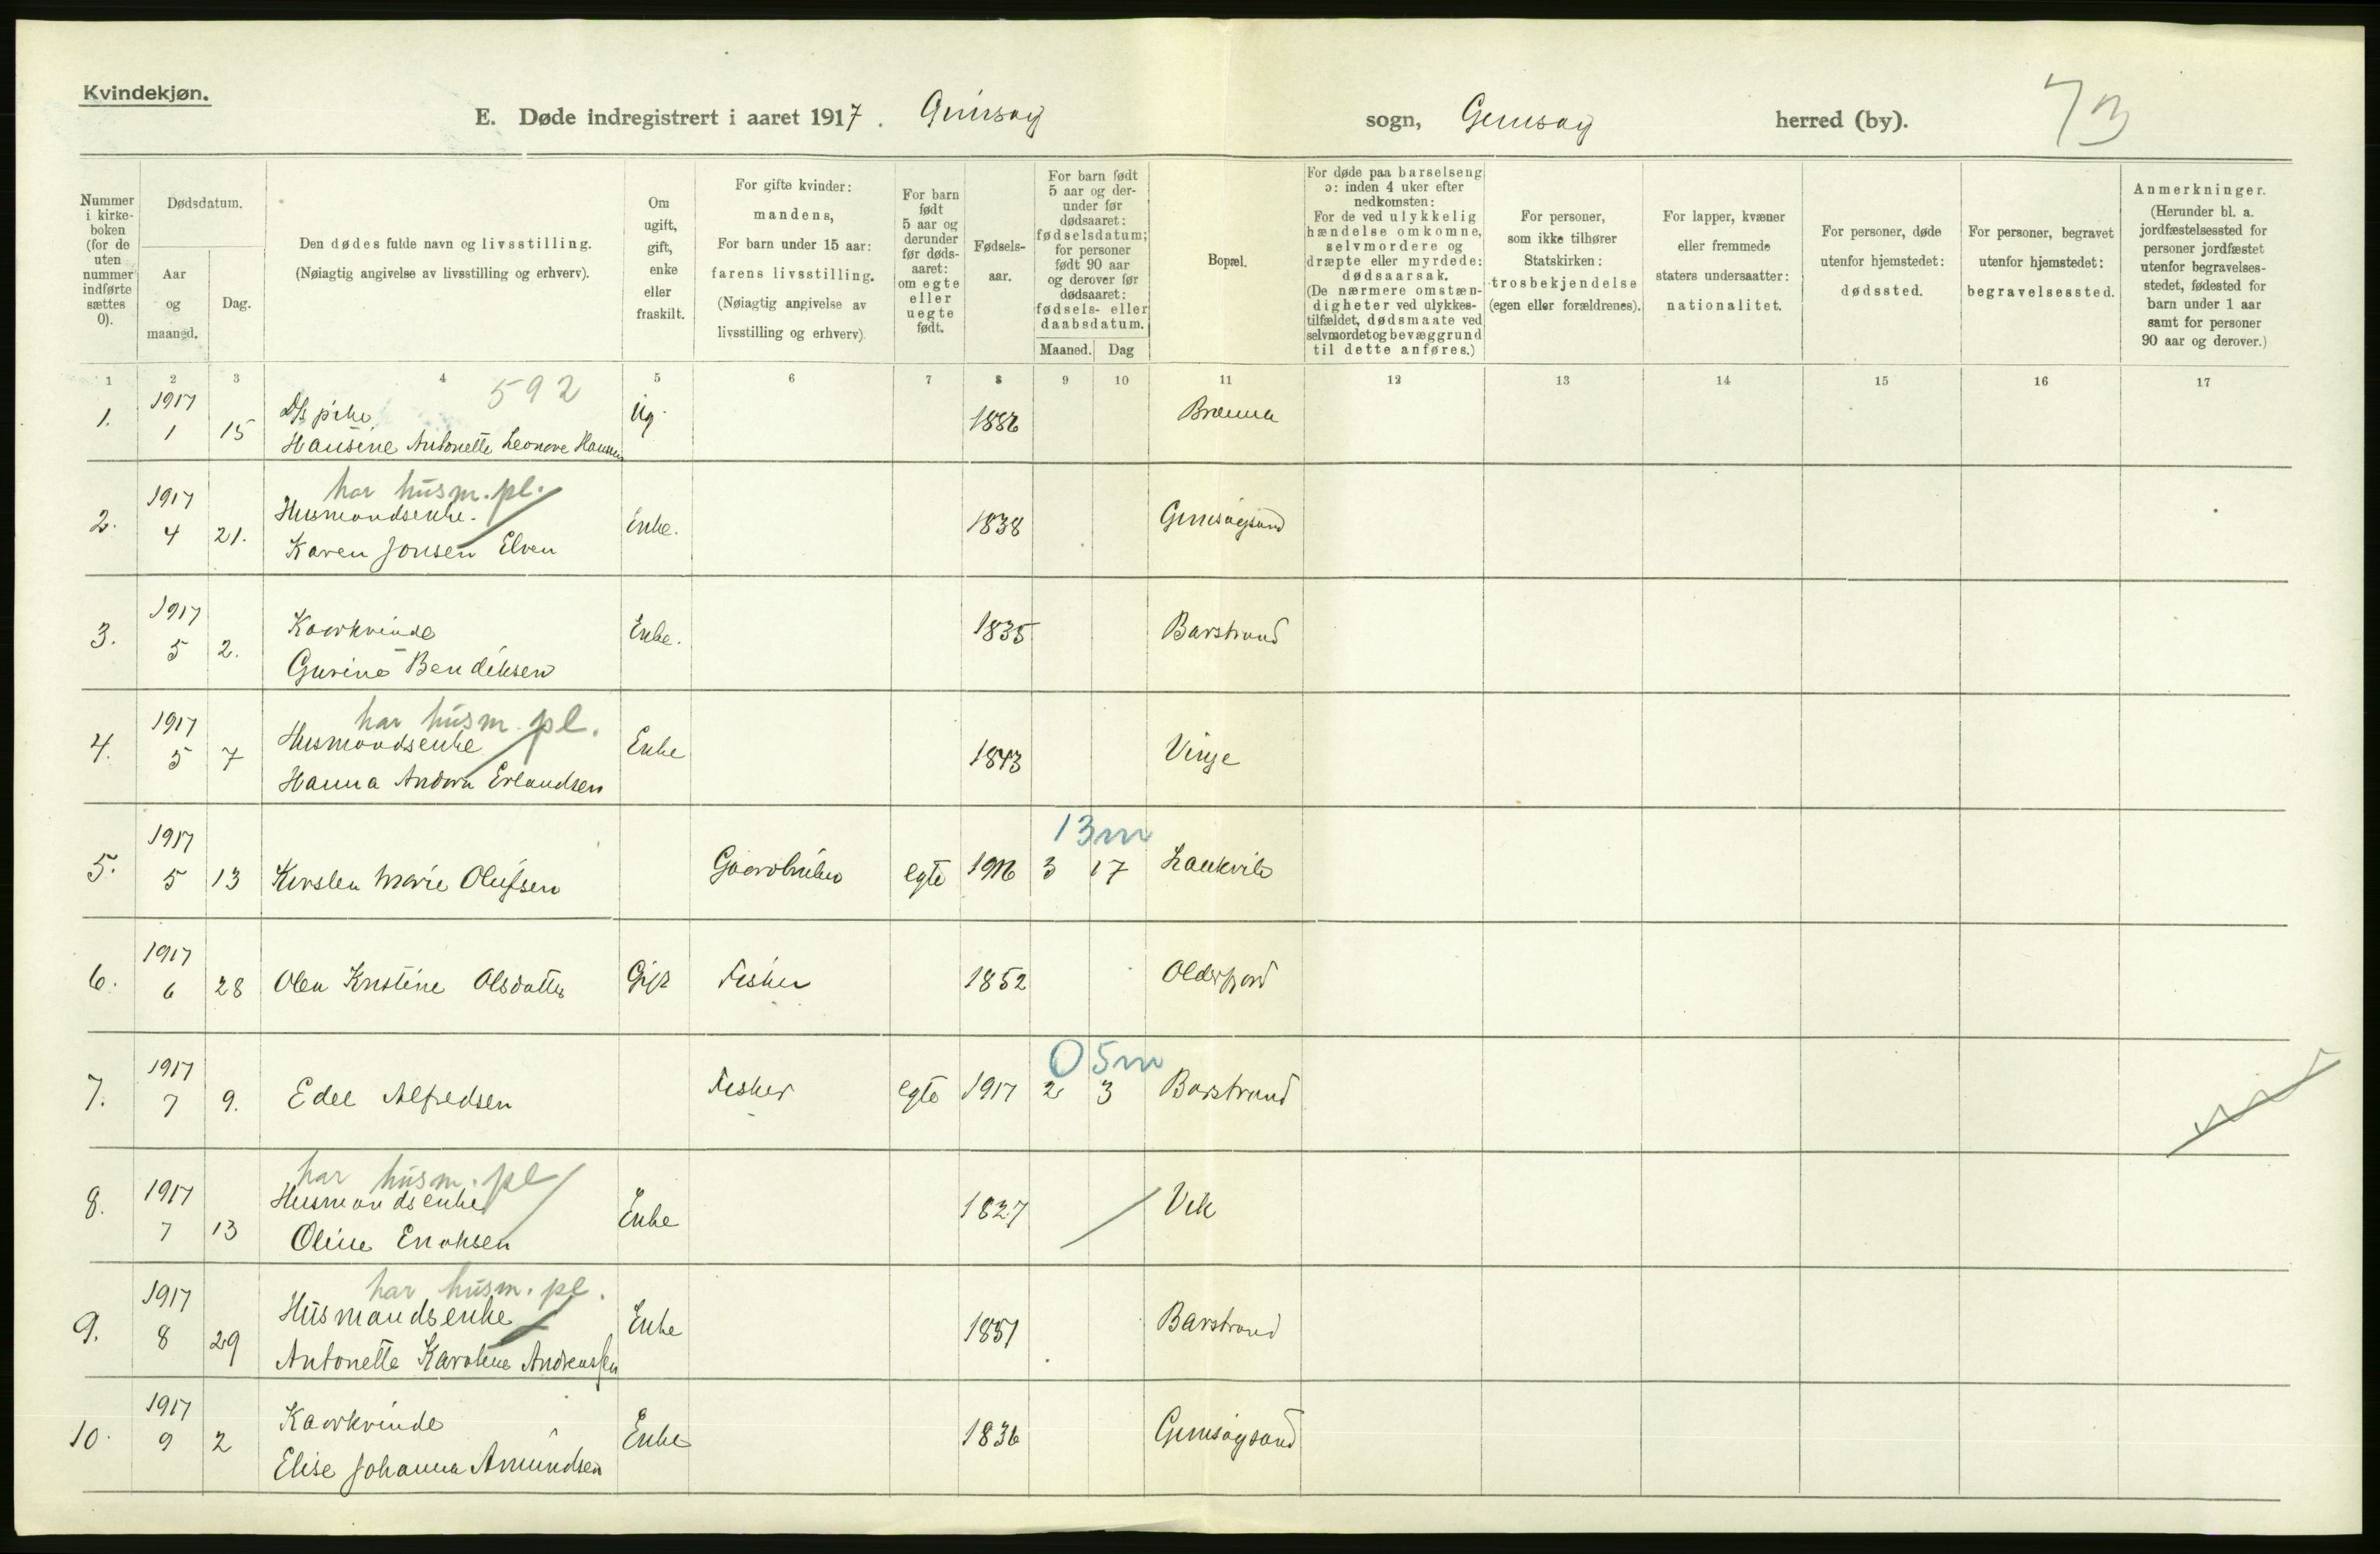 Kvindekjøn.
E. Døde indregistrert i aaret 1917. Gimsøy sogn, Gimsøy herred (by).
73
Nummer i kirkeboken (for de uten nummer indførte sættes 0).
Dødsdatum.
Aar og maaned.
Dag.
Den dødes fulde navn og livsstilling.
(Nøiagtig angivelse av livsstilling og erhverv).
Om ugift, gift, enke eller fraskilt.
For gifte kvinder: mandens,
For barn under 15 aar: farens livsstilling.
(Nøiagtig angivelse av livsstilling og erhverv)
For barn født 5 aar og derunder før dødsaaret: om egte eller uegte født.
Fødselsaar.
For barn født 5 aar og derunder før dødsaaret: fødselsdatum; for personer født 90 aar og derover før dødsaaret: fødsels- eller daabsdatum.
Maaned. Dag
Bopæl.
For døde paa barselseng ɔ: inden 4 uker efter nedkomsten:
For de ved ulykkelig hændelse omkomne, selvmordere og dræpte eller myrdede: dødsaarsak.
(De nærmere omstændigheter ved ulykkestilfældet, dødsmaate ved selvmordet og bevæggrund til dette anføres.)
For personer, som ikke tilhører Statskirken: trosbekjendelse (egen eller forældrenes).
For lapper, kvæner eller fremmede staters undersaatter: nationalitet.
For personer, døde utenfor hjemstedet: dødssted.
For personer, begravet utenfor hjemstedet: begravelsessted.
Anmerkninger.
(Herunder bl. a. jordfæstelsessted for personer jordfæstet utenfor begravelsesstedet, fødested for barn under 1 aar samt for personer 90 aar og derover.)
1 2 3 4 5 6 7 8 9 10 11 12 13 14 15 16 17
592
1. 1917 1 15 pike Ug. 1886 Brenna
Hansine Antonette Leonore Hansen
har husm. pl.
2. 1917 4 21. Husmandsenke. Enke. 1838 Gimsøysand
Karen Jonsen Elven
3. 1917 5 2. Kaarkvinde Enke. 1835 Barstrand
Gurine Bendiksen
har husm. pl.
4. 1917 5 7 Husmandsenke Enke 1843 Vinje
Hanna Andora Erlandsen
13 m
5. 1917 5 13 Kirsten Marie Olufsen Gaardbruker egte 1916 3 17 Laukvik
6. 1917 6 28 Olea Kristine Olsdatter Gift Fisker 1852 Olderfjord
0 5 m
7. 1917 7 9. Edel Alfredsen Fisker egte 1917 2 3 Barstrand
har husm. pl
8. 1917 7 13 Husmandsenke Enke 1827 Vik
Oline Enoksen
har husm. pl.
9. 1917 8 29 Husmandsenke Enke 1851 Barstrand
Antonette Karoline Andreassen
10. 1917 9 2 Kaarkvinde Enke 1836 Gimsøysand
Elise Johanna Amundsen